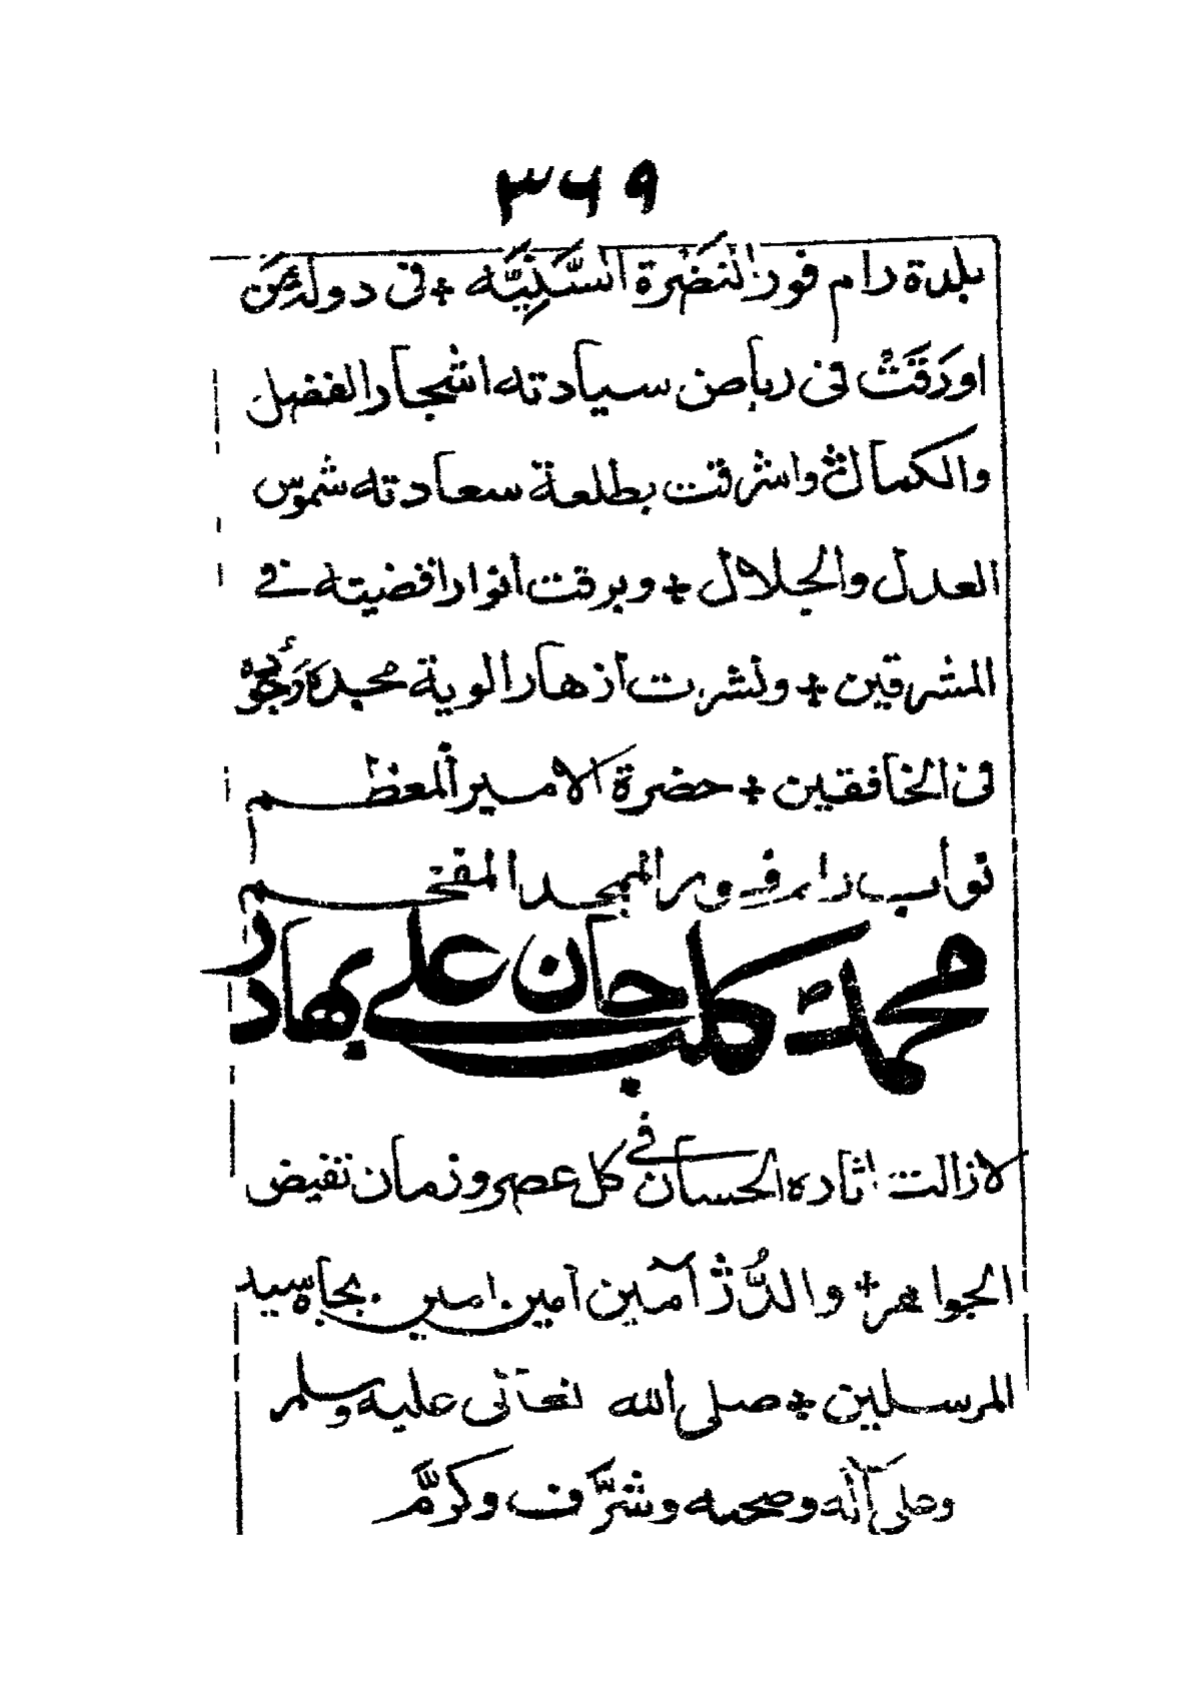 ٣٦٩
بلدة رام فور النضرة السَّنِيَّه + فى دولة من
اورَقَتْ فى رياض سيادته اشجار الفضل
والكمال واشرقت بطلعة سعادته شموس
العدل والجلال + وبرقت انوار اقضيته فى
المشرقين + ونشرت ازهار الوية مجده وجوده
فى الخافقين + حضرة الامير المعظم
نواب رامفور الممجد المفخم
محمد كلب على خان بهادر
لازالت اثاره الحسان فى كل عصر وزمان تفيض
الجواهر + والدُّرَرْ آمين امين امين بجاه سيد
المرسلين + صلى الله تعالى عليه وسلم
وعلى آله وصحبه وشرَّف وكرَّم